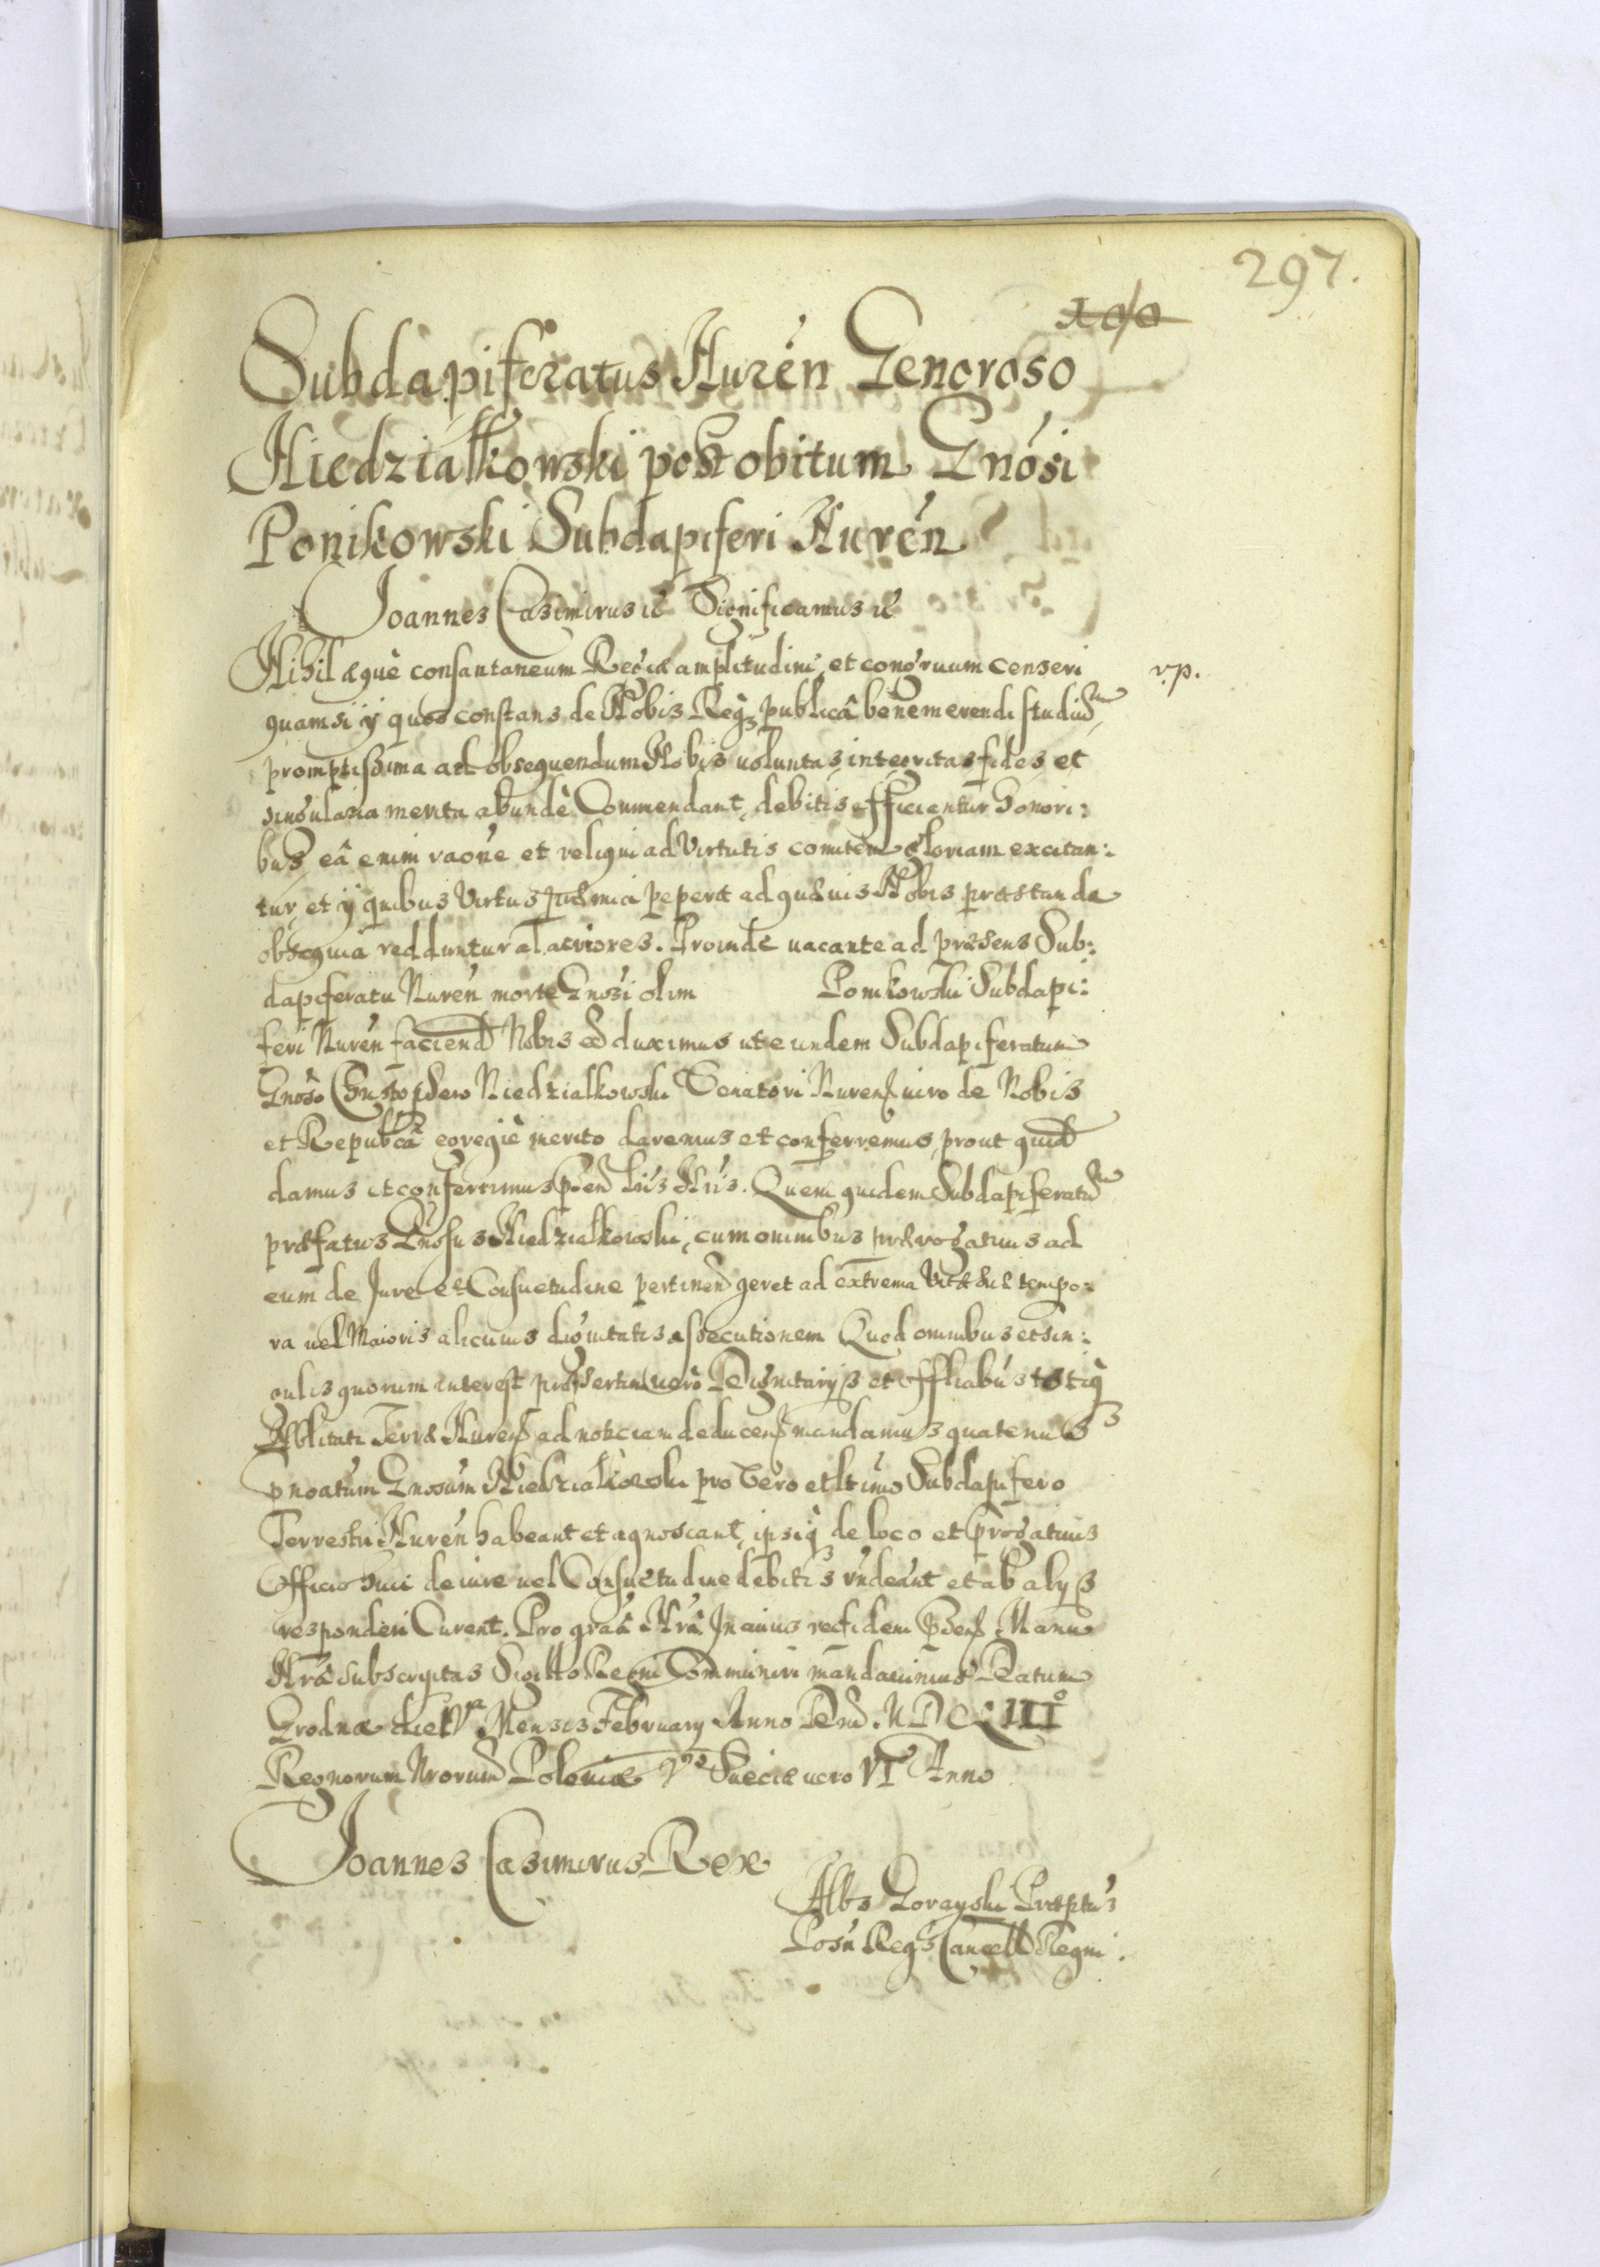 297.
Subdapiferatus Nurén Generoso
Niedziałkowski post obitum Gnósi
Ponikowski Subdapiferi Nurén
Joannes Casimirus etc Significamus etc
Nihil æquè consantaneum Regiæ amplitudini, et congruum censeri
v.p.
quam si ÿ quos constans de Nobis Reqз publicâ benemerendi studiū
promptissima ad obsequendum Nobis voluntas, integritas fides et
singularia merita abundè Commendant, debitis efficientur honori:
bus, eâ enim raone et reliqui ad Virtutis comitem gloriam excitan:
tur, et ÿ quibus Virtus præmia peperit ad quævis Nobis præstanda
obsequia redduntur alacriores. Proinde vacante ad præsens Sub:
dapiferatu Nurén morte Gnosi olim Ponikowski Subdapi:
feri Nurén faciend Nobis eē duximus ut eundem Subdapiferatum
Gnoso Christophero Niedzialkowski Venatori Nurens viro de Nobis
et Republcâ egregiè merito daremus et conferremus, prout quid
damus et conferrimus pñd Lris Nris. Quem quidem Subdapiferatū
præfatus Gnosus Niedzialkowski, cum omnibus prærogativis ad
eum de Jure et Consuetudine pertinen geret ad extrema Vitæ suæ tempo:
ra vel Maioris alicuius dignitatis assecutionem Quod omnibus et sin:
gulis quorum interest præsertim verò Dignitarijs et Offliabus totiq
Nblitati Terræ Nurens ad noticiam deducens mandamus quatenus
pnoatum Gnosum Niedzialkowski pro Vero et ltimo Subdapifero
Terrestri Nurén habeant et agnoscant, ipsiq de loco et progativis
Officio suo de iure vel Consuetudine debitis rñdeant et ab alijs
responderi Curent. Pro graâ Nrâ In cuius rei fidem pñs Manu
Nrâ subscriptas Sigillo Regni Communiri mandavimus Datum
Grodnæ die Mensis February Anno Dnī MDCLIIIº
Regnorum Nrorum Poloniæ Vº Sueciæ vero VI Anno
Joannes Casimirus Rex
Albs Gorayski Præptus
Posn Regs Cancell Regni.